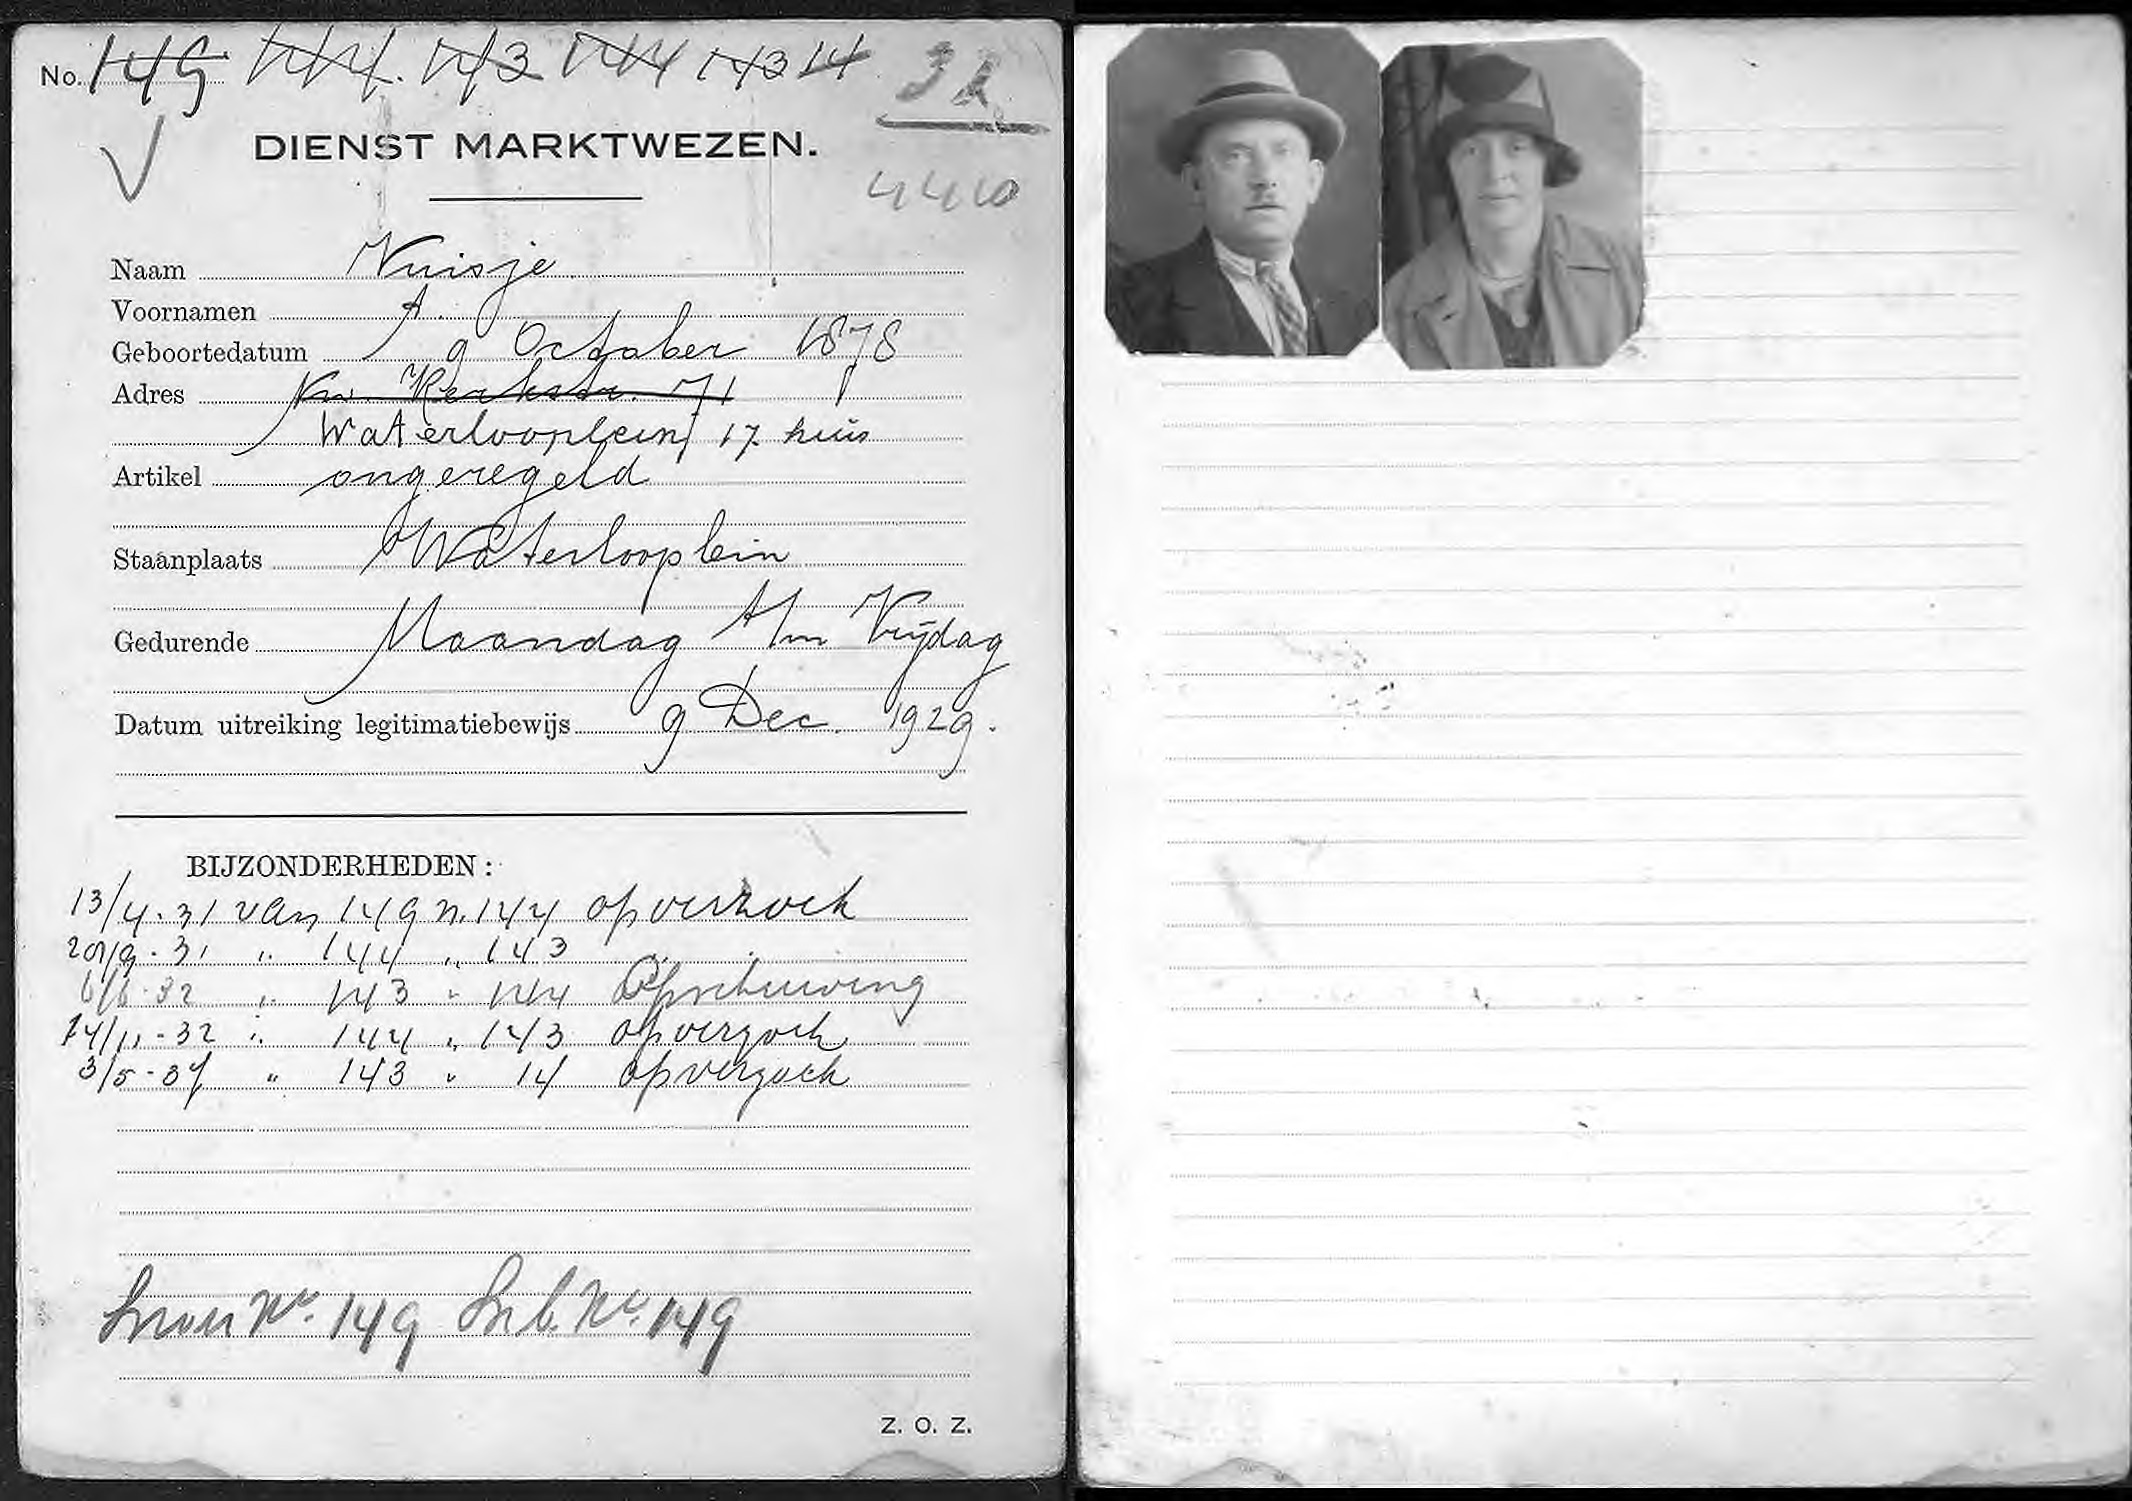 No. 149 144. 143 144 143 14 32
DIENST MARKTWEZEN.
Naam Nuisje
Voornamen A.
Geboortedatum 9 October 1878
Adres Nw. Kerkstr. 71
Waterlooplein 17 huis
Artikel ongeregeld
Staanplaats Waterlooplein
Gedurende Maandag t/m Vrijdag
Datum uitreiking legitimatiebewijs 9 Dec. 1929.
BIJZONDERHEDEN:
13/4.31 van 149 n. 144 op verzoek
20/9.31 " 144 " 143 "
6/6-32 " 143 " 144 Opschuiving
14/11-32 " 144 " 143 op verzoek
3/5-37 " 143 " 14 op verzoek
No. 149 No. 149
Z. O. Z.